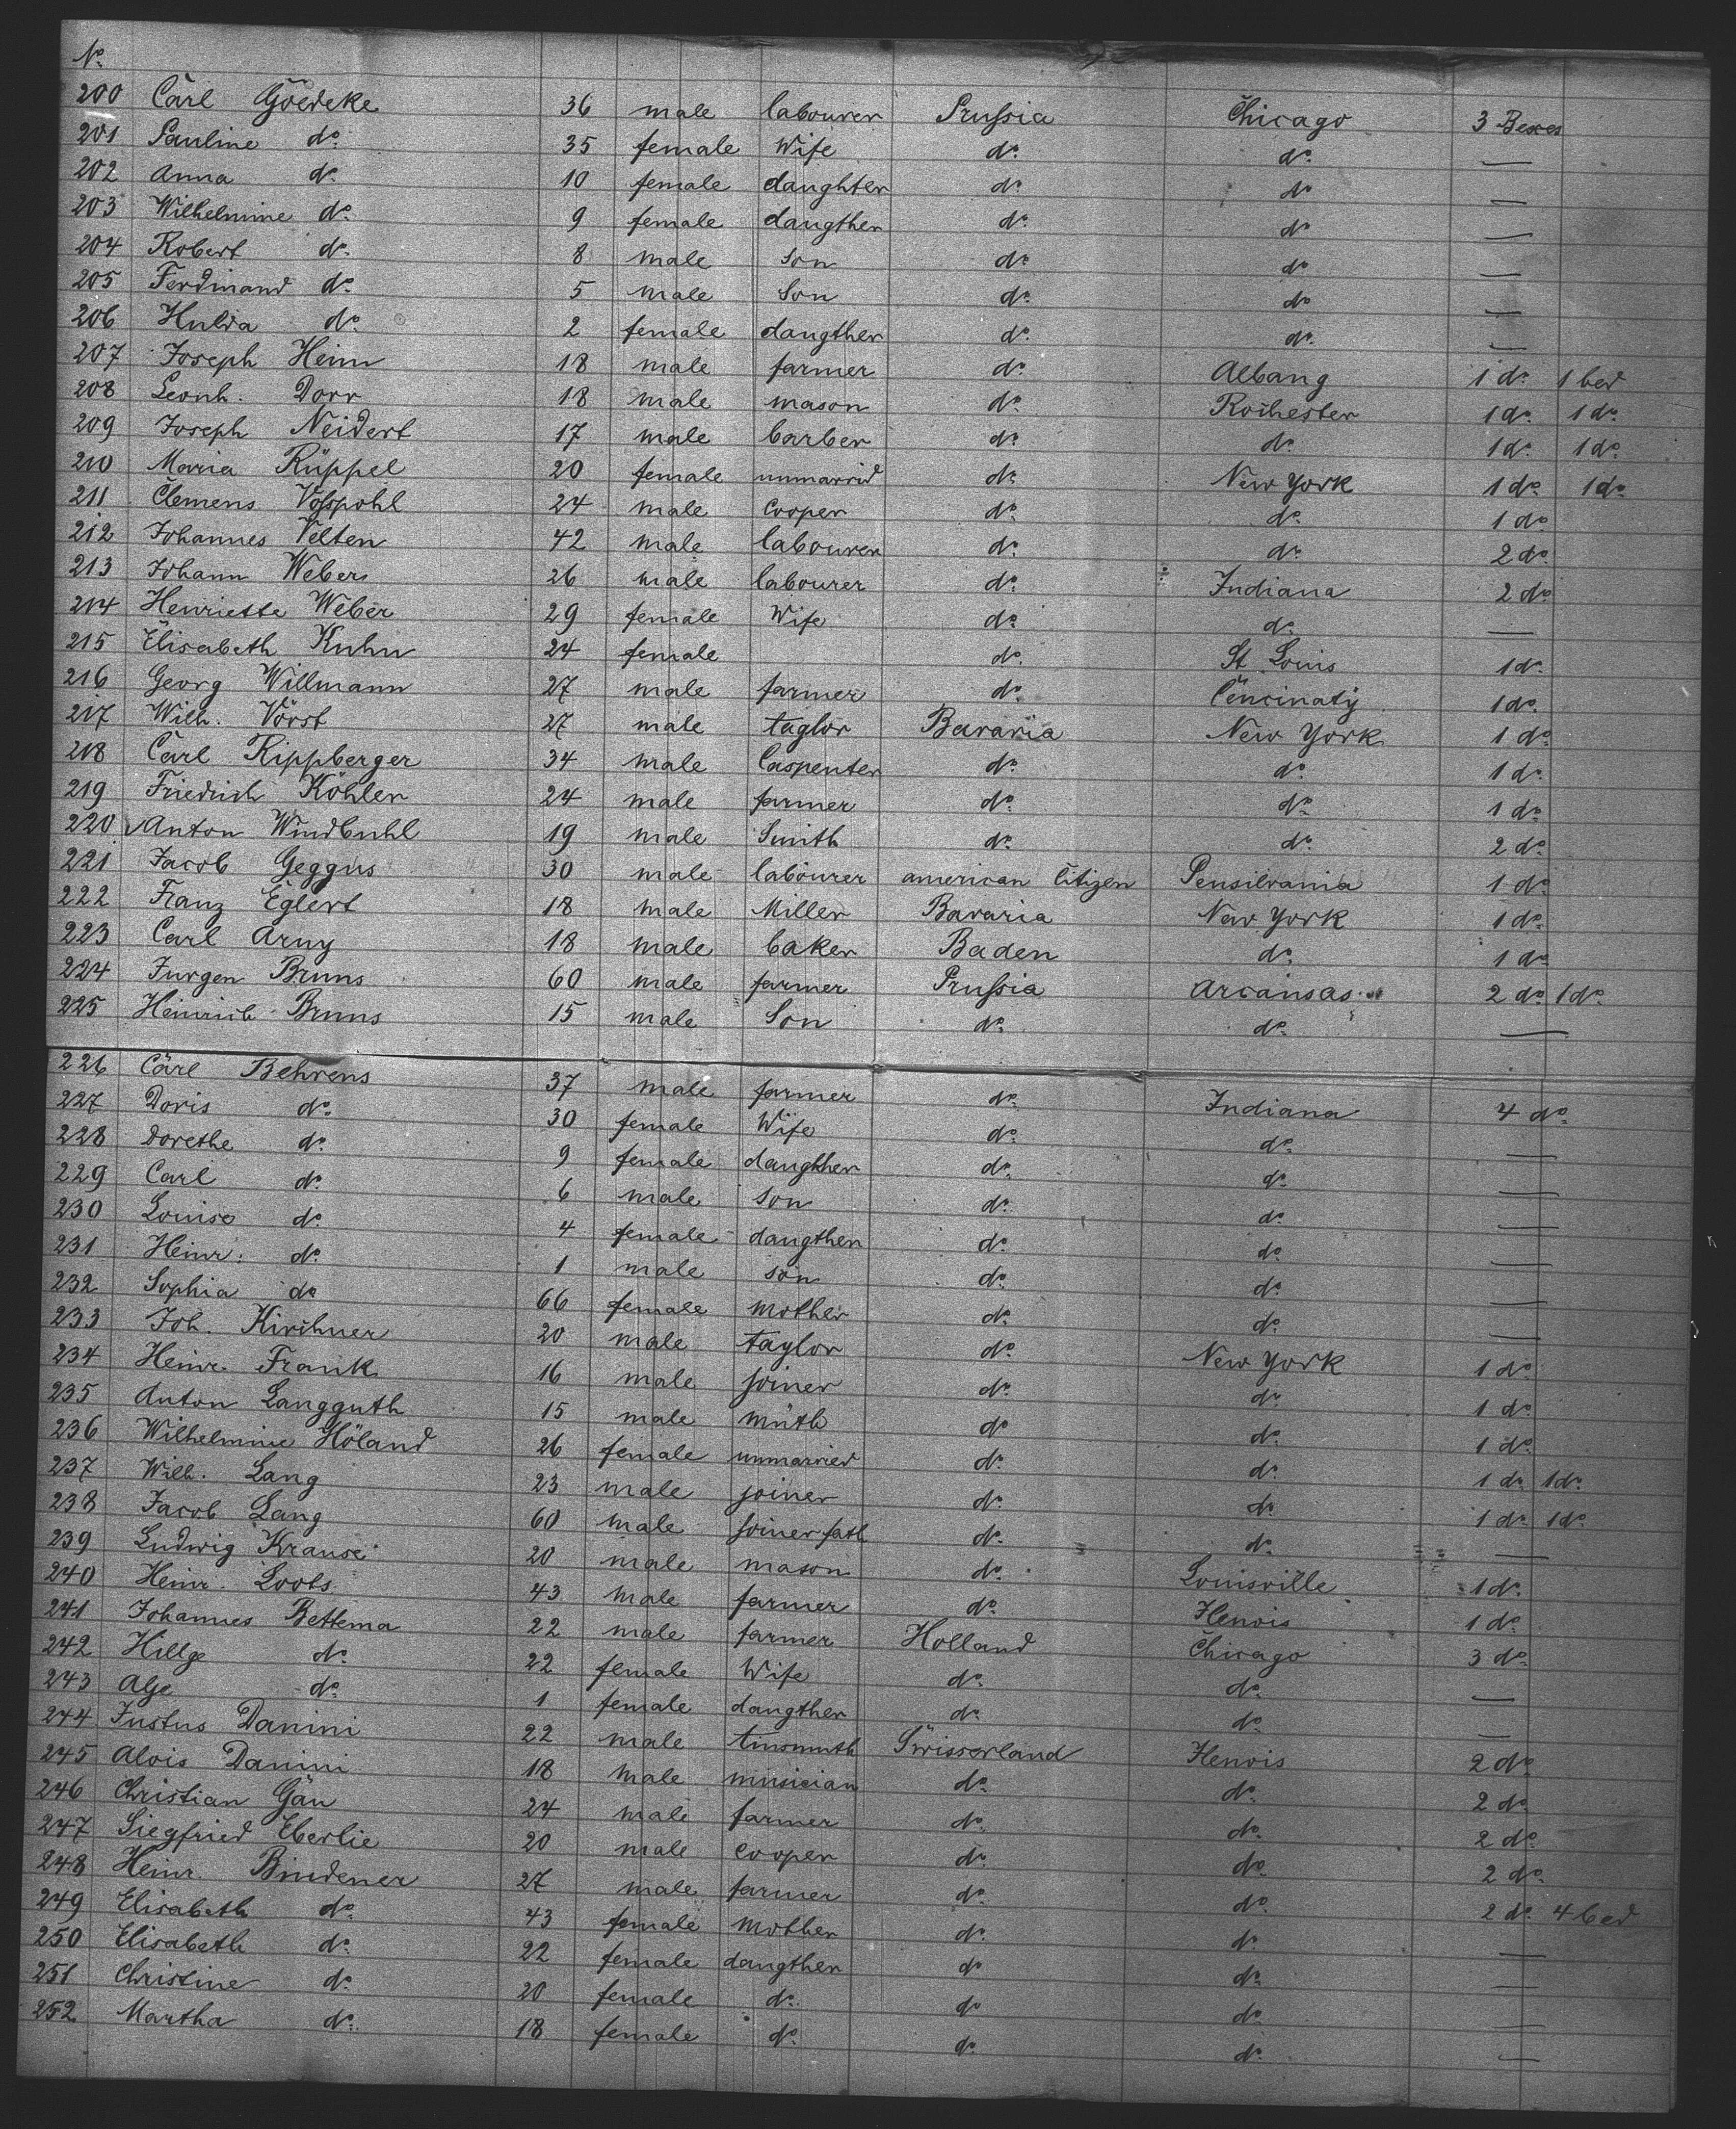 No.
200 Carl Göedeke 36 male labourer Prussia Chicago 3 Boxes
201 Pauline do. 35 female Wife do. do. —
202 Anna do. 10 female daughter do. do —
203 Wilhelmine do. 9 female daugther do. do —
204 Robert do. 8 male Son do. do —
205 Ferdinand do. 5 male Son do. do —
206 Hulda do. 2 female daugther do. do. —
207 Joseph Heim 18 male farmer do. Albang 1 do. 1 bed
208 Leonh. Dorr 18 male mason do. Rochester 1 do. 1 do.
209 Joseph Neidert 17 male barber do. do. 1 do. 1 do.
210 Maria Rüppel 20 female unmarrid do. New York 1 do. 1 do.
211 Clemens Vosspohl 24 male Cooper do. do. 1 do
212 Johannes Velten 42 male labourer do. do. 2 do.
213 Johann Weber 26 male labourer do. Indiana 2 do.
214 Henriette Weber 29 female Wife do. do. —
215 Elisabeth Kuhn 24 female do. St Louis 1 do.
216 Georg Willmann 27 male farmer do. Cencinaty 1 do.
217 Wilh. Vörst 27 male taylor Bavaria New York 1 do.
218 Carl Rippberger 34 male Caspenter do. do. 1 do.
219 Friedrich Köhler 24 male farmer do. do. 1 do.
220 Anton Windbuhl 19 male Smith do. do. 2 do.
221 Jacob Geggus 30 male labourer american Citizen Pensilvania 1 do.
222 Franz Eglert 18 male Miller Bavaria New York 1 do.
223 Carl Arny 18 male baker Baden do. 1 do.
224 Jurgen Bruns 60 male farmer Prussia Arcansas 2 do. 1 do.
225 Heinrich Bruns 15 male Son do. do. —
226 Carl Behrens 37 male farmer do. Indiana 4 do.
227 Doris do. 30 female Wife do. do. —
228 Dorethe do. 9 female daugther do. do. —
229 Carl do. 6 male son do. do. —
230 Louise do. 4 female daugther do. do. —
231 Heinr. do. 1 male son do. do. —
232 Sophia do 66 female mother do. do. —
233 Joh. Kirchner 20 male taylor do. New York 1 do.
234 Heinr. Frank 16 male joiner do. do. 1 do.
235 Anton Langguth 15 male do. do. 1 do.
236 Wilhelmine Höland 26 female unmarried do. do. 1 do. 1 do.
237 Wilh. Lang 23 male joiner do. do. 1 do. 1 do.
238 Jacob Lang 60 male joiner fath do. do. —
239 Ludwig Krause 20 male mason do. Louisville 1 do.
240 Heinr. Loots 43 male farmer do. Ilenois 1 do.
241 Johannes Bettema 22 male farmer Holland Chicago 3 do.
242 Hillge do. 22 female Wife do. do. —
243 Alje do. 1 female daugther do. do. —
244 Justus Danini 22 male tinsmith Swisserland Ilenois 2 do.
245 Alois Danini 18 male musician do. do. 2 do.
246 Christian Gäu 24 male farmer do. do. 2 do.
247 Siegfried Eberlie 20 male cooper do. do. 2 do.
248 Heinr. Bindener 27 male farmer do. do. 2 do. 4 bed
249 Elisabeth do. 43 female mother do. do. —
250 Elisabeth do. 22 female daugther do do. —
251 Christine do. 20 female do. do do. —
252 Martha do. 18 female do. do. do. —